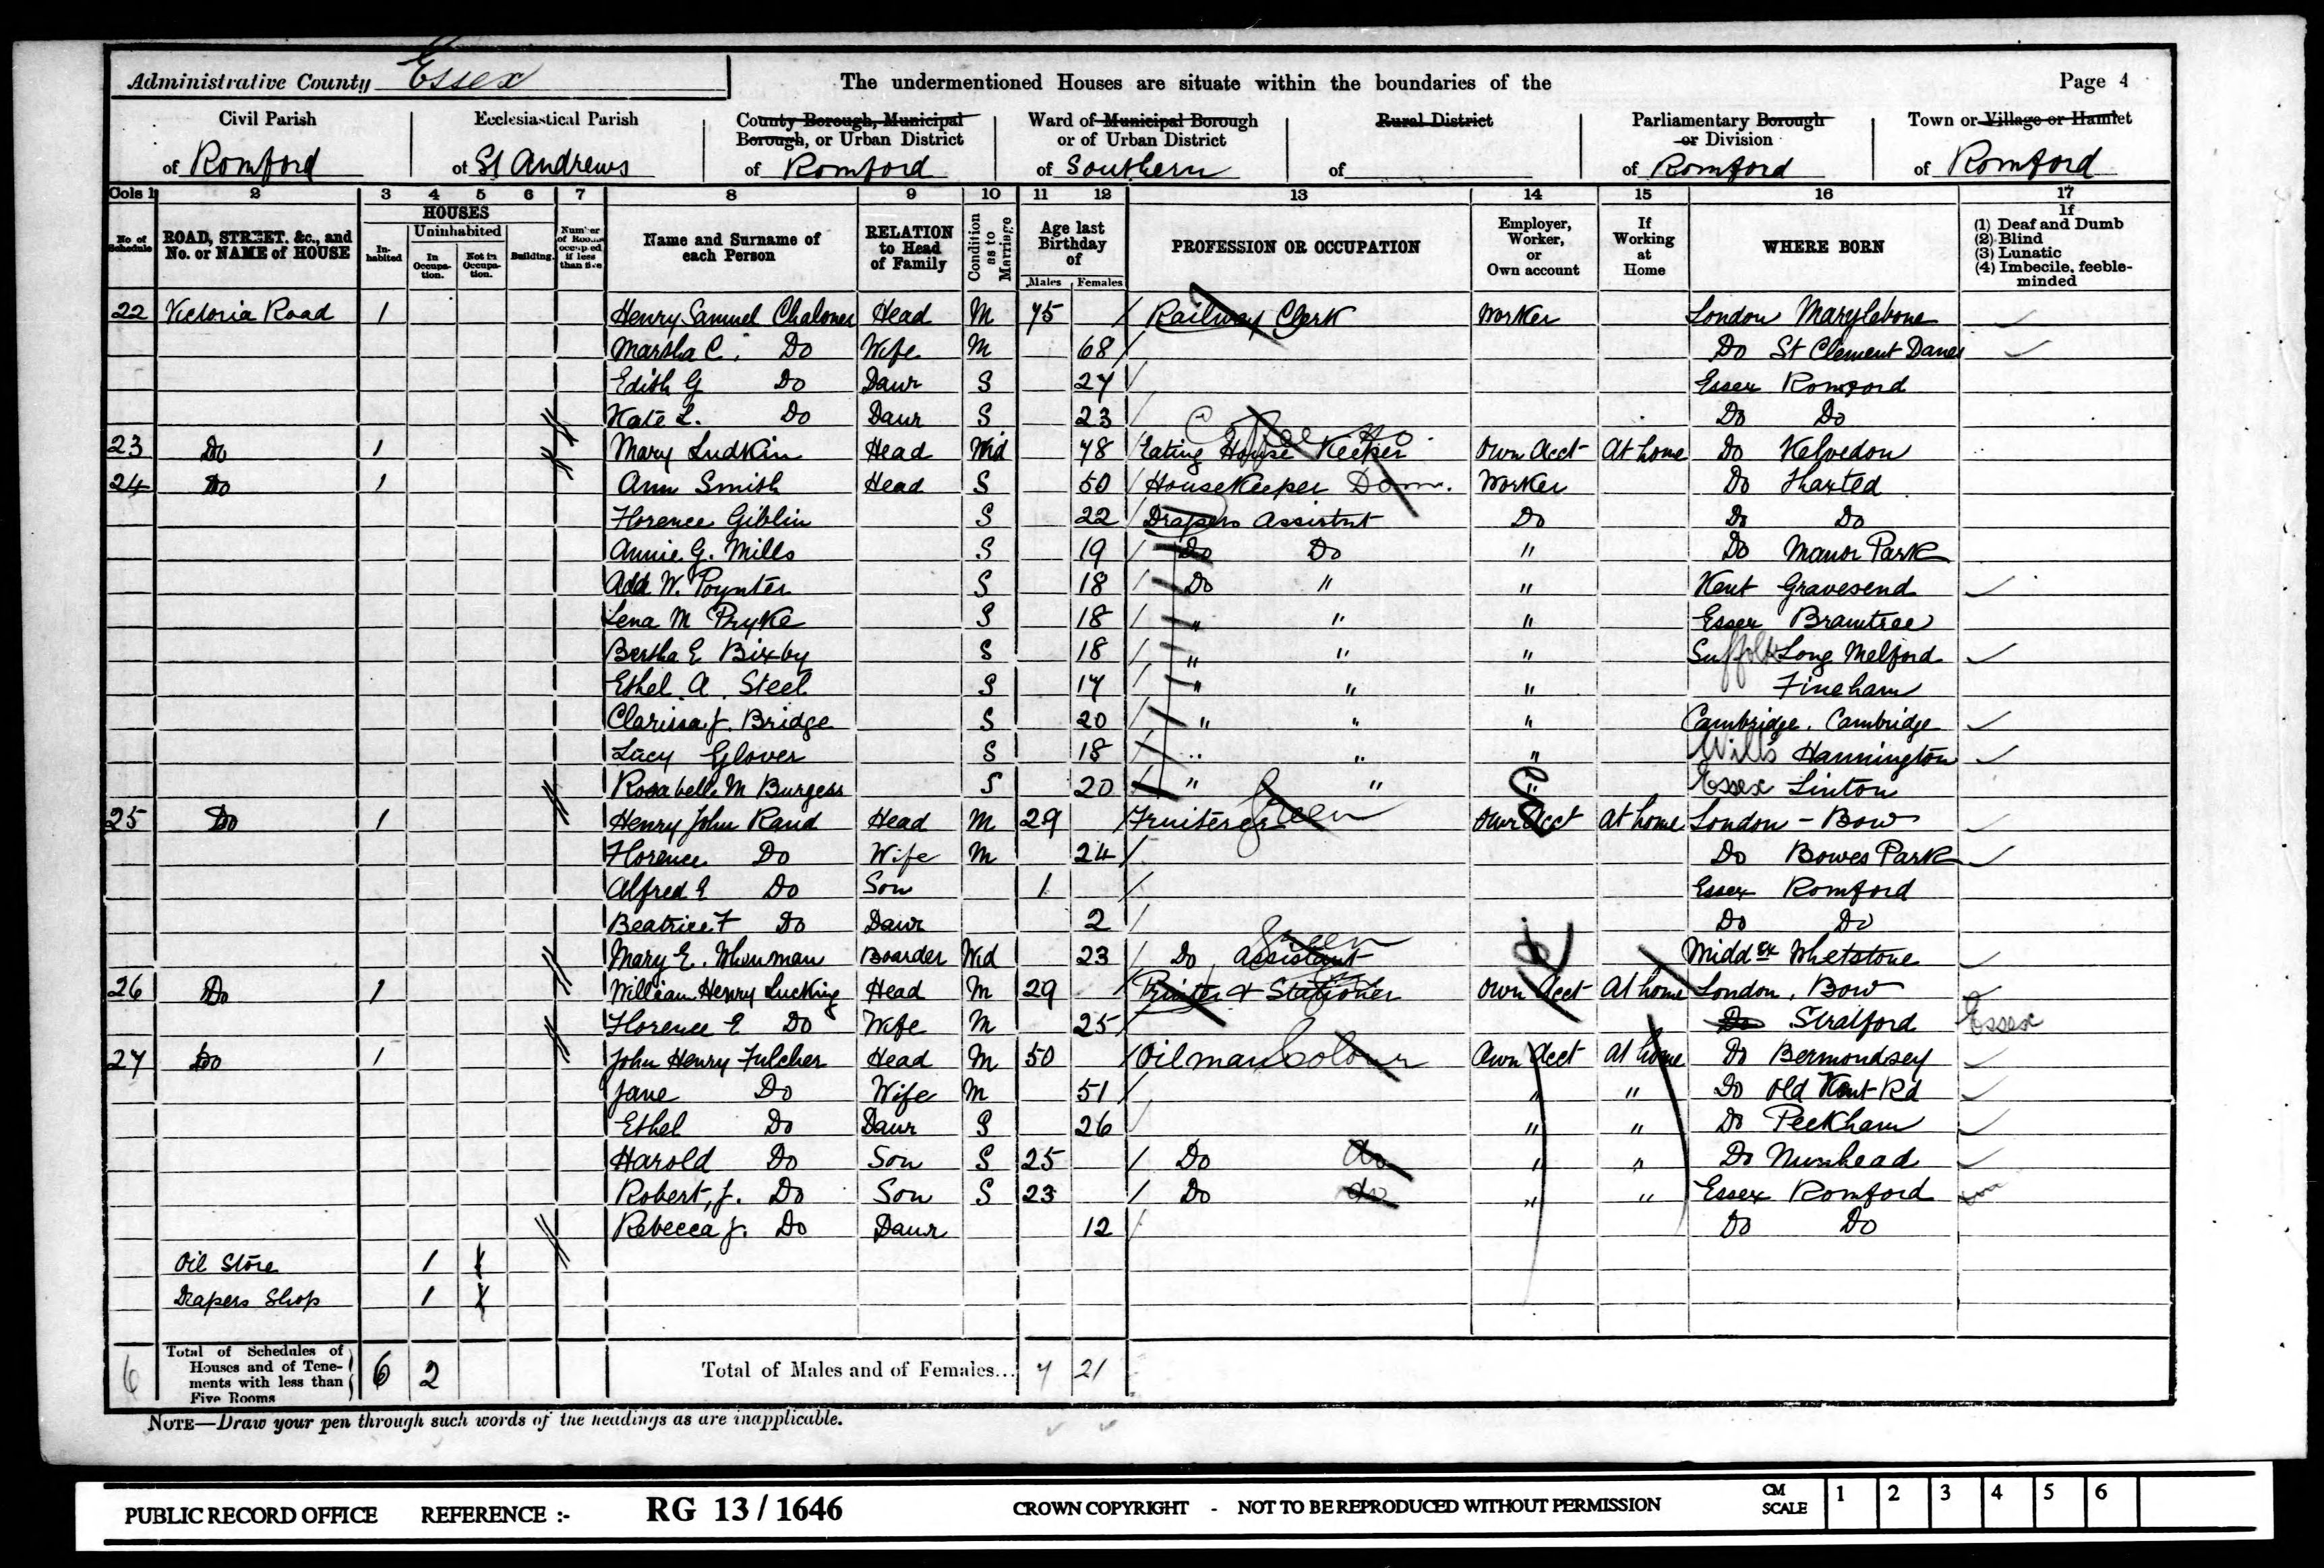 Administrative County Essex The undermentioned Houses are situate within the boundaries of the Page 4
Civil Parish of Romford
Ecclesiastical Parish of St Andrews
County Borough, Municipal Borough, or Urban District of Romford
Ward of Municipal Borough or of Urban District of Southern
Rural District of
Parliamentary Borough or Division of Romford
Town or Village or Hamlet of Romford
Cols 1 2 3 4 5 6 7 8 9 10 11 12 13 14 15 16 17
No of Schedule
ROAD, STREET, &c., and No. or NAME of HOUSE
HOUSES
Inhabited
Uninhabited
In Occupation.
Not in Occupation.
Building.
Number of Rooms occupied if less than five
Name and Surname of each Person
RELATION to Head of Family
Condition as to Marriage
Age last Birthday of
Males Females
PROFESSION OR OCCUPATION
Employer, Worker, or Own account
If Working at Home
WHERE BORN
If
(1) Deaf and Dumb
(2) Blind
(3) Lunatic
(4) Imbecile, feeble-minded
22 Victoria Road 1 Henry Samuel Chaloner Head M 75 Railway Clerk Worker London Marylebone
Martha C. Do Wife M 68 Do St Clement Danes
Edith G Do Daur S 27 Essex Romford
Kate L. Do Daur S 23 Do Do
Coffee Ho.
23 Do 1 Mary Ludkin Head Wid 78 Eating House Keeper Own Acct At home Do Kelvedon
24 Do 1 Ann Smith Head S 50 Housekeeper Dom. Worker Do Thaxted
Florence Giblin S 22 Drapers Assistnt Do Do Do
Annie G. Mills S 19 Do Do " Do Manor Park
Ada W. Poynter S 18 Do " " Kent Gravesend
Lena M Pryke S 18 " " " Essex Braintree
Bertha E Bixby S 18 " " " Suffolk Long Melford
Ethel. A. Steel S 17 " " " Fincham
Clarissa J. Bridge S 20 " " " Cambridge. Cambridge
Lucy Glover S 18 " " " Wilts Hannington
Rosabelle M Burgess S 20 " " " Essex Linton
25 Do 1 Henry John Rand Head M 29 Fruiterer green Own Acct At home London - Bow
Florence Do Wife M 24 Do Bowes Park
Alfred E Do Son 1 Essex Romford
Beatrice F Do Daur 2 Do Do
green
Mary E. Boarder Wd 23 Do Assistant Middex Whetstone
26 Do 1 William Henry Lucking Head M 29 Printer & Stationer Own Acct At home London. Bow
Florence E Do Wife M 25 Do Stratford Essex
27 Do 1 John Henry Fulcher Head M 50 Oilman Colour Own Acct At home Do Bermondsey
Jane Do Wife M 51 " " Do Old Kent Rd
Ethel Do Daur S 26 " " Do Peckham
Harold Do Son S 25 Do do " " Do Nunhead
Robert, J. Do Son S 23 Do do " " Essex Romford
Rebecca J. Do Daur 12 Do Do
Oil Store 1 X
Drapers Shop 1 X
6 Total of Schedules of Houses and of Tenements with less than Five Rooms 6 2 Total of Males and of Females... 7 21
NOTE—Draw your pen through such words of the headings as are inapplicable.
PUBLIC RECORD OFFICE REFERENCE :- RG 13 / 1646 CROWN COPYRIGHT - NOT TO BE REPRODUCED WITHOUT PERMISSION CM SCALE 1 2 3 4 5 6